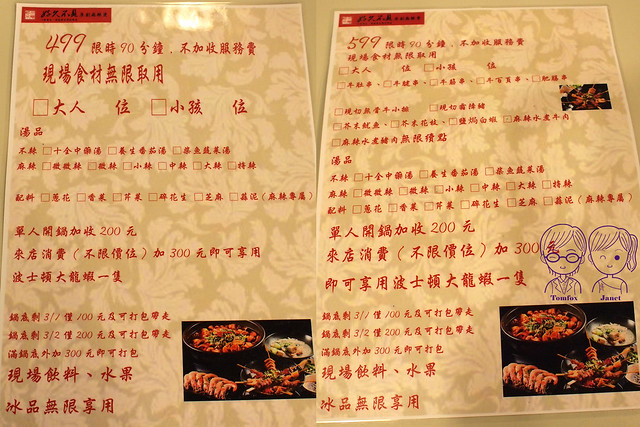 499 限時90分鐘、不加收服務費
現場食材無限取用
□大人 位 □小孩 位
湯品
不辣 □十全中藥湯 □養生番茄湯 □柴魚蔬菜湯
麻辣 □微微辣 □微辣 □小辣 □中辣 □大辣 □特辣
配料 □蔥花 □香菜 □芹菜 □碎花生 □芝麻 □蒜泥(麻辣專屬)
單人開鍋加收200元
來店消費(不限價位)加300元即可享用
波士頓大龍蝦一隻
鍋底剩3/1僅100元及可打包帶走
鍋底剩3/2僅200元及可打包帶走
滿鍋底外加300元即可打包
現場飲料、水果
冰品無限享用
599 限時90分鐘、不加收服務費
現場食材無限取用
□大人 位 □小孩 位
□牛肚串、□牛腱串、□牛筋串、□牛百頁串、□肥腸串
□現切無骨牛小排 □現切霜降豬
□芥末魷魚、□芥末花枝、□鹽焗白蝦、□麻辣水煮牛肉
□麻辣水煮豬肉無限續點
湯品
不辣 □十全中藥湯 □養生番茄湯 □柴魚蔬菜湯
麻辣 □微微辣 □微辣 □小辣 □中辣 □大辣 □特辣
配料 □蔥花 □香菜 □芹菜 □碎花生 □芝麻 □蒜泥(麻辣專屬)
單人開鍋加收200元
來店消費(不限價位)加300元
即可享用波士頓大龍蝦一隻
Tomfox Janet
鍋底剩3/1僅100元及可打包帶走
鍋底剩3/2僅200元及可打包帶走
滿鍋底外加300元即可打包
現場飲料、水果
冰品無限享用